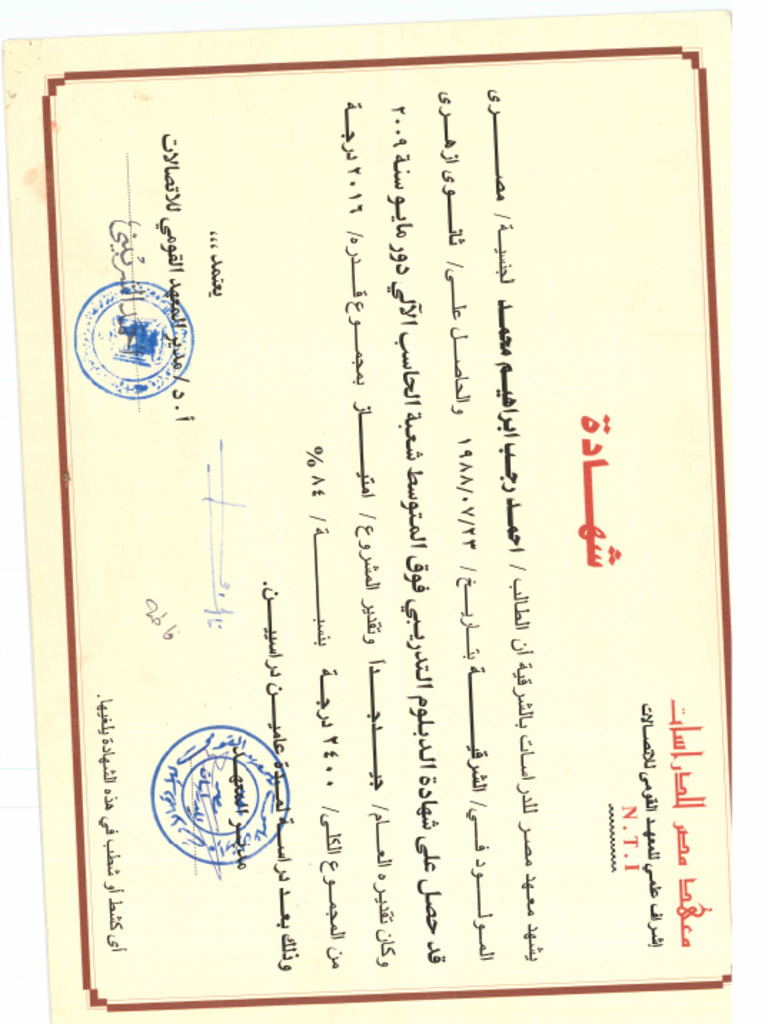 معهد مصر للدراسات
إشراف علمي للمعهد القومى للاتصالات
N.T.I
شهادة
يشهد معهد مصر للدراسات بالشرقية أن الطالب / احمد رجب ابراهيم محمد لجنسية / مصرى
المولود في / الشرقية بتاريخ / ١٩٨٨/٠٧/٢٣ والحاصل على / ثانوى ازهرى
قد حصل على شهادة الدبلوم التدريبي فوق المتوسط شعبة الحاسب الآلي دور مايو سنة ٢٠٠٩
وكان تقديره العام / جيد جدا وتقدير المشروع / امتياز بمجموع قدره / ٢٠١٦ درجة
من المجموع الكلى / ٢٤٠٠ درجة بنسبة / ٨٤ %
وذلك بعد دراسة لمدة عامين دراسيين.
يعتمد ،،،
مدير المعهد
أ . د / مدير المعهد القومي للاتصالات
فاطمة
أى كشط أو شطب في هذه الشهادة يلغيها.